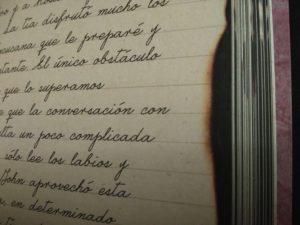 La tía disfrutó mucho los
que le preparé y
El único obstáculo
que lo superamos
que la conversación con
un poco complicada
sólo lee los labios y
John aprovechó esta
en determinado